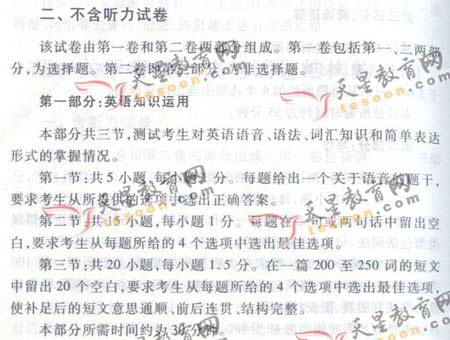 二、不含听力试卷
该试卷由第一卷和第二卷两部分组成。第一卷包括第一、二两部
分,为选择题。第二卷即第三部分,为非选择题。
第一部分:英语知识运用
本部分共三节,测试考生对英语语音、语法、词汇知识和简单表达
形式的掌握情况。
第一节:共5小题,每小题1分。每题给出一个关于语音的题干,
要求考生从所提供的选项中选出正确答案。
第二节:共15小题,每小题1分。每题在一句或两句话中留出空
白,要求考生从每题所给的4个选项中选出最佳选项。
第三节:共20小题,每小题1.5分。在一篇200至250词的短文
中留出20个空白,要求考生从每题所给的4个选项中选出最佳选项,
使补足后的短文意思通顺、前后连贯、结构完整。
本部分所需时间约为30分钟。
天星教育网
tesoon.com
天星教育网
tesoon.com
天星教育网
tesoon.com
天星教育网
tesoon.com
天星教育网